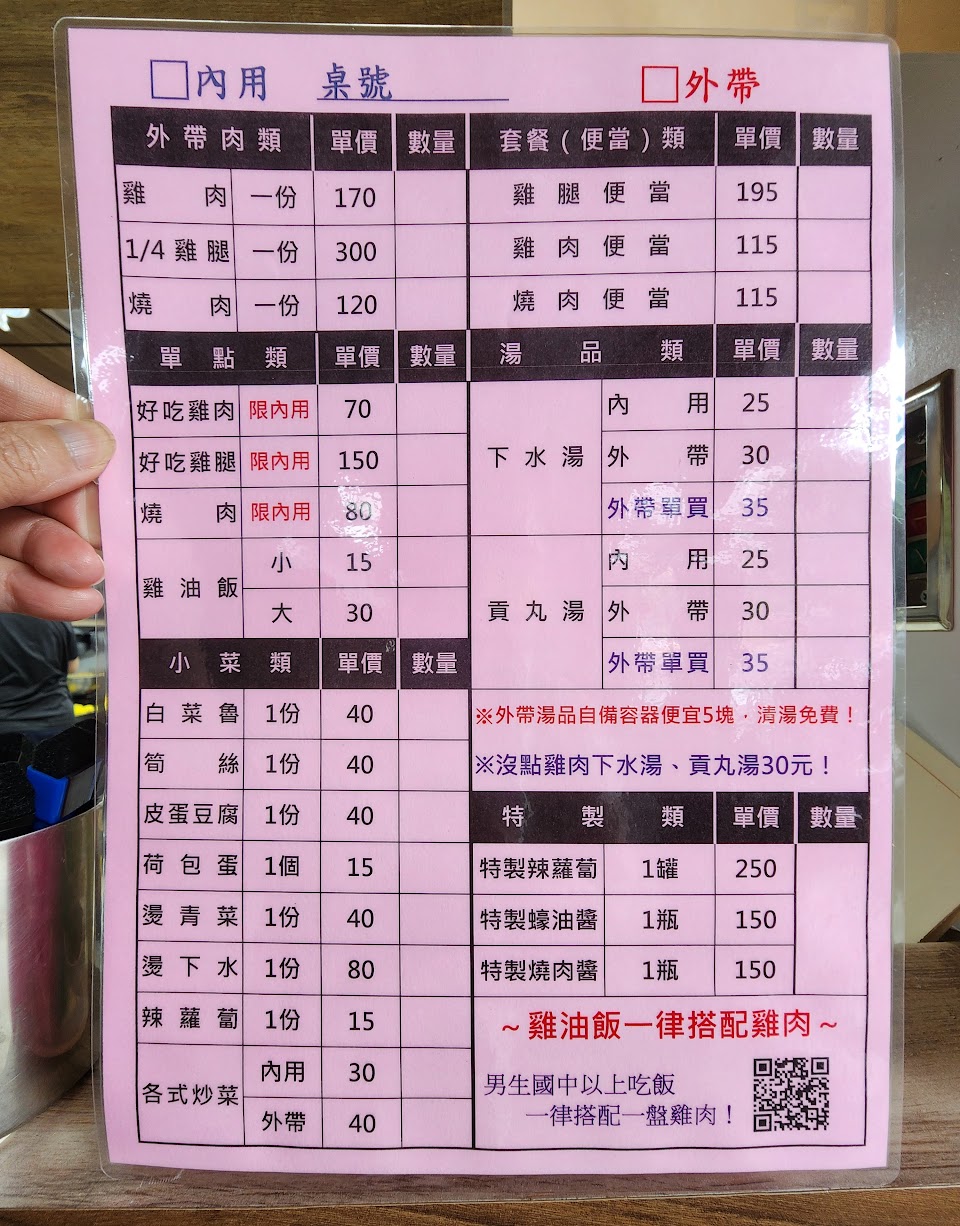 內用 桌號 外帶
外帶肉類 單價 數量
雞肉 一份 170
1/4雞腿 一份 300
燒肉 一份 120
套餐(便當)類 單價 數量
雞腿便當 195
雞肉便當 115
燒肉便當 115
單點類 單價 數量
好吃雞肉 限內用 70
好吃雞腿 限內用 150
燒肉 限內用 80
雞油飯 小 15
大 30
湯品類 單價 數量
下水湯 內用 25
外帶 30
外帶單買 35
貢丸湯 內用 25
外帶 30
外帶單買 35
※外帶湯品自備容器便宜5塊,清湯免費!
※沒點雞肉下水湯、貢丸湯30元!
小菜類 單價 數量
白菜魯 1份 40
筍絲 1份 40
皮蛋豆腐 1份 40
荷包蛋 1個 15
燙青菜 1份 40
燙下水 1份 80
辣蘿蔔 1份 15
各式炒菜 內用 30
外帶 40
特製類 單價 數量
特製辣蘿蔔 1罐 250
特製蠔油醬 1瓶 150
特製燒肉醬 1瓶 150
~雞油飯一律搭配雞肉~
男生國中以上吃飯
一律搭配一盤雞肉!